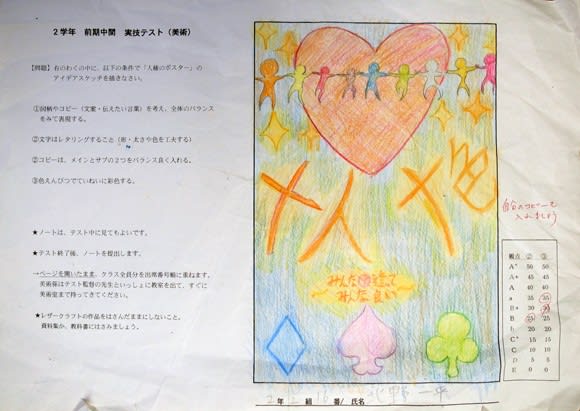 2学年 前期中間 実技テスト(美術)
【例題】右のわくの中に、以下の条件で「人権のポスター」の
アイデアスケッチを描きなさい。
①図柄やコピー(文案・伝えたい言葉)を考え、全体のバランス
をみて表現する。
②文字はレタリングすること(形・太さや色を工夫する)
②コピーは、メインとサブの2つをバランス良く入れる。
③色えんぴつでていねいに彩色する。
★ノートは、テスト中に見てもよいです。
★テスト終了後、ノートを提出します。
→ページを開いたまま、クラス全員分を出席番号順に重ねます。
美術係はテスト監督の先生といっしょに教室を出て、すぐに
美術室まで持ってきてください。
★レザークラフトの作品をはさんだままにしないこと。
資料集か、教科書にはさみましょう。
十人十色
みんな違って
みんな良い
自分のコピーを
入れましょう
観点 ② ③
A° 50 50
A+ 45 45
A 40 40
a 35 35
B+ 30 30
B 25 25
b 20 20
C° 15 15
C 10 10
D 5 5
E 0 0
2年 2組 18番/氏名 一平